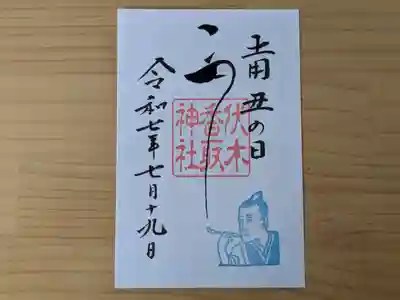 土用 丑の日
う
伏木
香取
神社
令和七年七月十九日